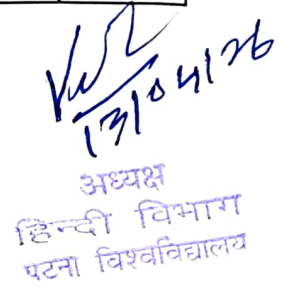 13/04/26
अध्यक्ष
हिन्दी विभाग
पटना विश्वविद्यालय